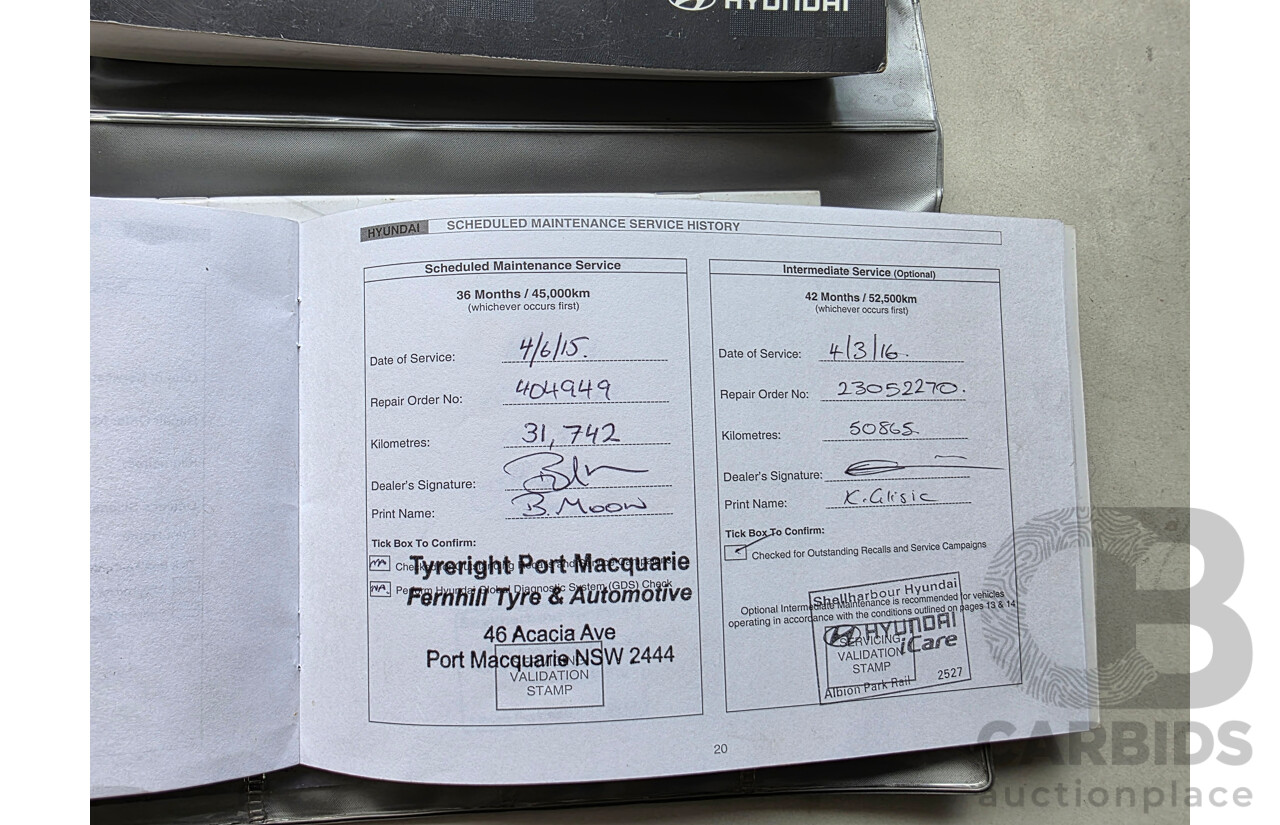 HYUNDAI
HYUNDAI SCHEDULED MAINTENANCE SERVICE HISTORY
Scheduled Maintenance Service
36 Months / 45,000km
(whichever occurs first)
Date of Service: 4/6/15.
Repair Order No: 404949
Kilometres: 31,742
Dealer's Signature:
Print Name: B. Moon
Tick Box To Confirm:
NA Checked for Outstanding Recalls and Service Campaigns
NA. Perform Hyundai Global Diagnostic System (GDS) Check
Tyreright Port Macquarie
Fernhill Tyre & Automotive
46 Acacia Ave
Port Macquarie NSW 2444
SERVICING
VALIDATION
STAMP
Intermediate Service (Optional)
42 Months / 52,500km
(whichever occurs first)
Date of Service: 4/3/16.
Repair Order No: 23052270.
Kilometres: 50865.
Dealer's Signature:
Print Name: K. Glisic
Tick Box To Confirm:
Checked for Outstanding Recalls and Service Campaigns
Optional Intermediate Maintenance is recommended for vehicles
operating in accordance with the conditions outlined on pages 13 & 14
Shellharbour Hyundai
HYUNDAI
iCare
Albion Park Rail 2527
SERVICING
VALIDATION
STAMP
20
CB
CARBIDS
auctionplace